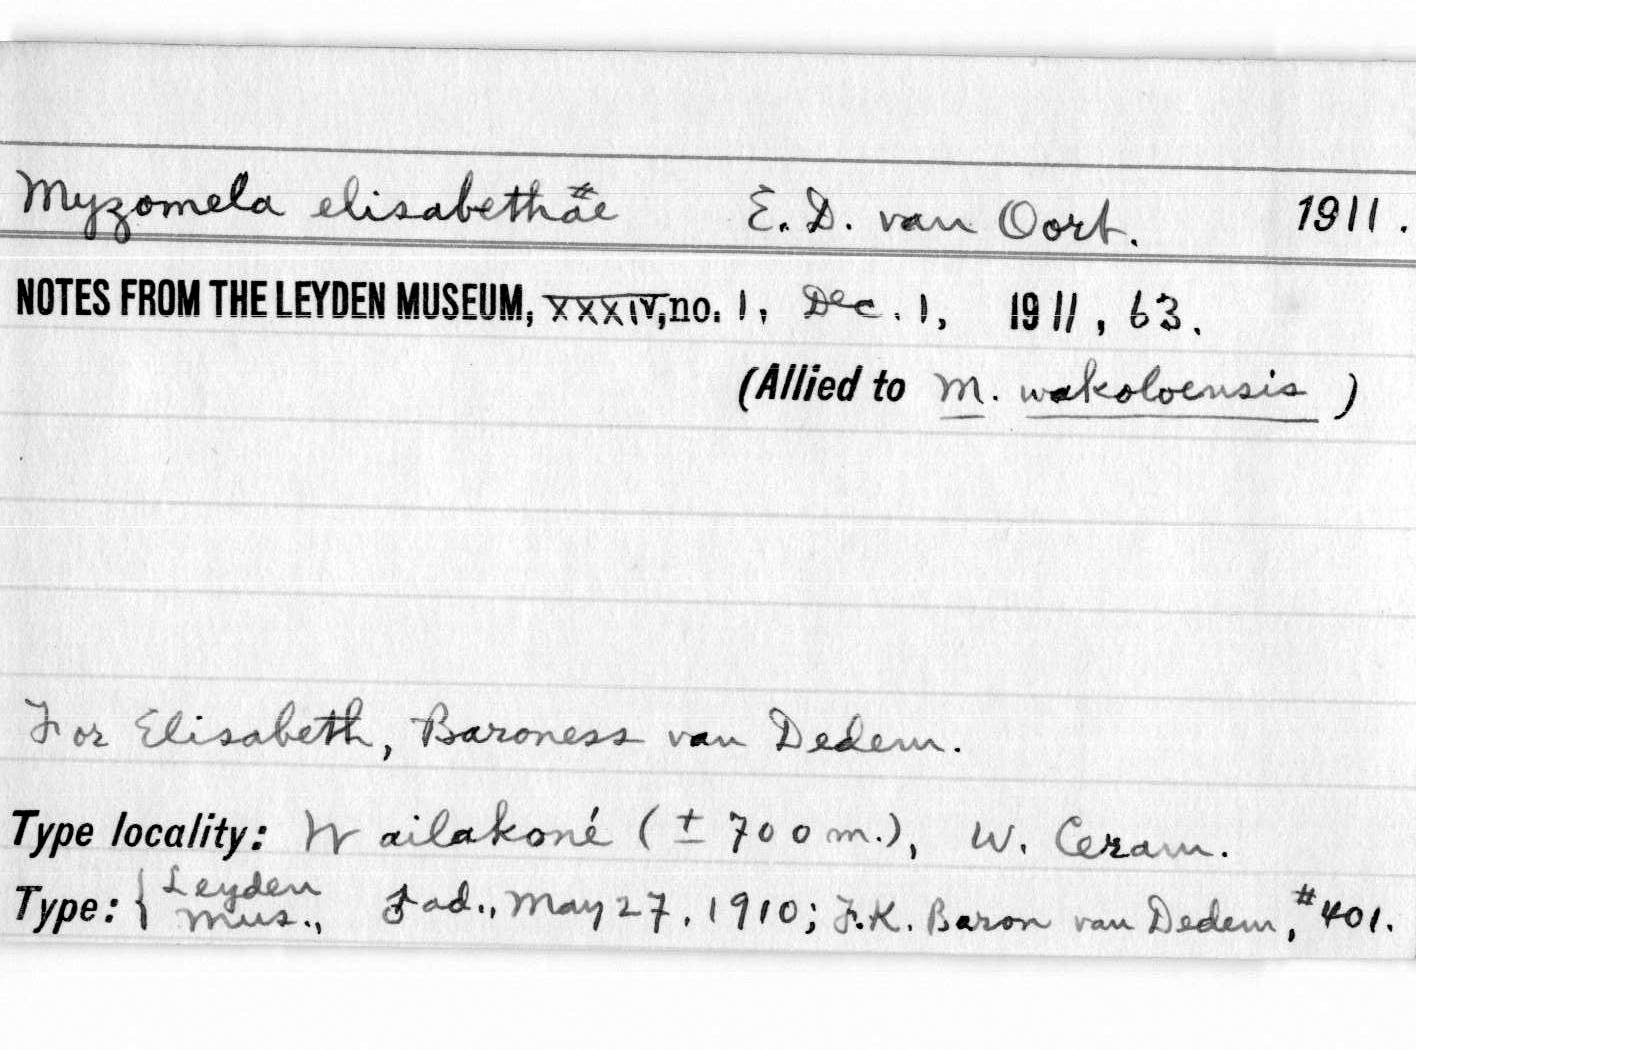 Myzomela elisabethae E. D. van Oort. 1911.
NOTES FROM THE LEYDEN MUSEUM, XXXIV, no. 1, Dec. 1, 1911, 63.
(Allied to M. wakoloensis )
For Elisabeth, Baroness van Dedem.
Type locality: Wailakoné (± 700 m.), W. Ceram.
Type: { Leyden Mus., ad., May 27, 1910; F.K. Baron van Dedem, #401.